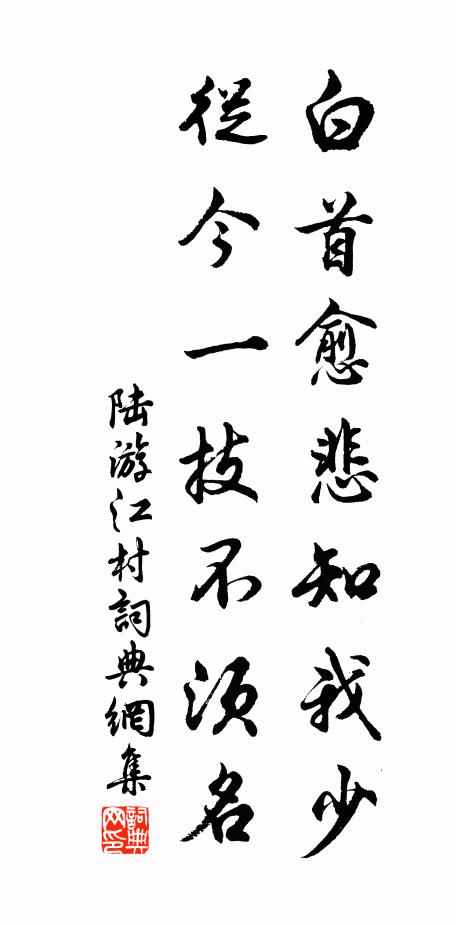 白首愈悲知我少
從今一技不須名
陆游江村詞典網集
詞典网印